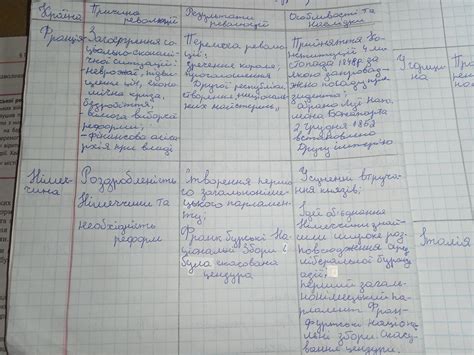 Країна
Причина революції
Результати революції
Особливості та наслідки
Франція
Загострення со-
ціально-економі-
чної ситуації:
- неврожаї, підви-
щення цін, еконо-
мічна криза,
безробіття;
- вимога виборчої
реформи;
- фінансова аріст
при владі
Перемога револю-
ції
зречення короля,
проголошення
Другої республіки,
створення „націона
них майстерень"
Прийняття Ко-
нституції 4 лис
топада 1848р. за
якою запровад-
жено посаду пре
зидента
обрано Луї Нап
леона Бонапарта
2 грудня 1852
встановлено
Другу імперію
Угорщи
на
Німеч-
чина
Роздробленість
Німеччини та
необхідність
реформ
Створення першо
го загальнонім
ецького парламе
нту;
Франкфуртські На
ціональні Збори
була скасована
цензура
Усунення втруча
ння князів;
Ідеї об'єднання
Німеччини знай
шли широке роз
повсюдження серед
ліберальної буржу
азії;
перший загаль-
нонімецький па
рламент Фран-
кфуртські Націона
льні збори. Скасу
вання цензури.
Італія